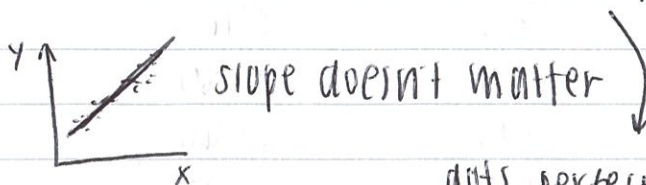 Y
slope doesn't matter
X
dots